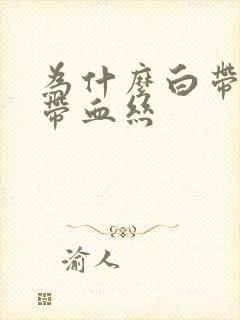 为什麼白帶
帶血絲
渝人